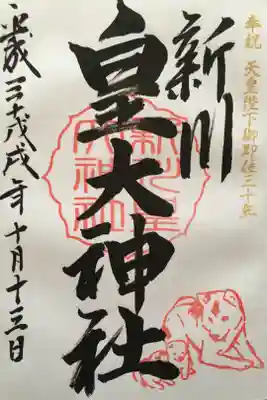 奉祝 天皇陛下御即位三十年
新川
皇大神社
平成三十戊戌年十月十三日